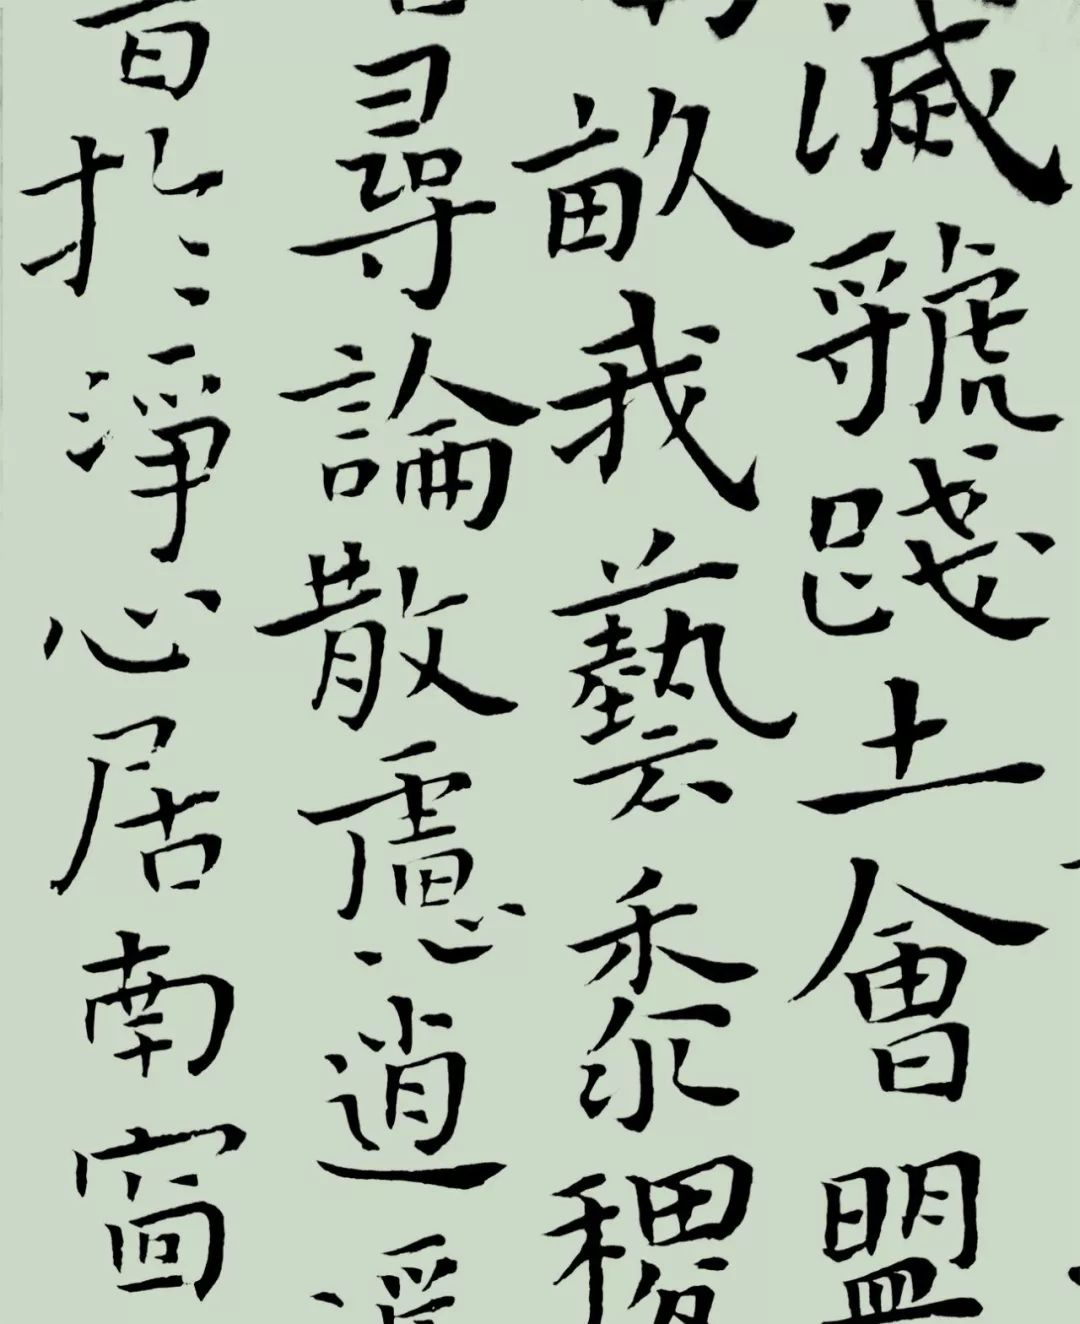 滅虢踐土會盟
畝我藝黍稷
尋論散慮逍
於淨心居南窗